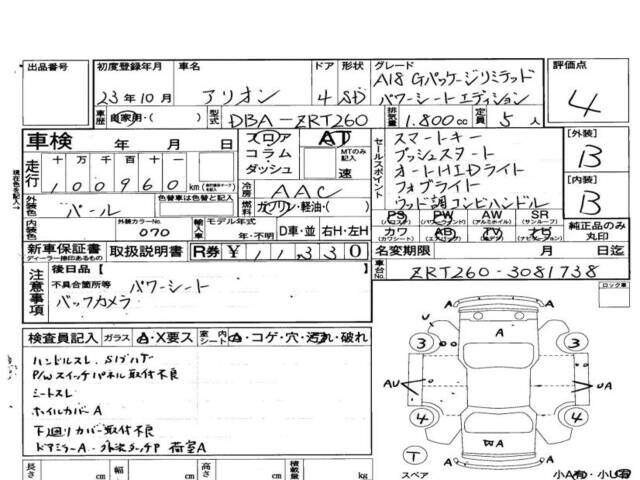 出品番号 初度登録年月 車名 ドア 形状 グレード 評価点
23年10月 アリオン 4 SD A18 Gパッケージリミテッド パワーシートエディション 4
車歴 自家用・( ) 型式 DBA-ZRT260 排気量 1.800cc 定員 5人
車検 年 月 日 フロア コラム ダッシュ AT MTのみ記入 速
セールスポイント スマートキー
プッシュスタート
オートHIDライト
フォグライト
ウッド調コンビハンドル
[外装] B
[内装] B
走行 十万千百十一 100960km
冷房 AAC
外装色 パール 色替車は色替と記入 燃料 ガソリン・軽油・( )
PS PW AW SR
(パワステ) (パワーウィンド) (アルミホイル) (サンルーフ)
カワ AB TV ナビ
(カワシート) (エアバッグ)
純正品のみ丸印
内装色 外装カラーNo. 070 輸入車 モデル年式 年・不明 D車・並 右H・左H
新車保証書 ディーラー捺印あるもの 取扱説明書 R券 ¥11330
名変期限 月 日迄
車台No. ZRT260-3081738
注意事項 後日品[ ]
不具合箇所等 パワーシート
バックカメラ
ロック車
検査員記入 ガラス A・X要ス 室内 シート 内 ・コゲ・穴・汚れ・破れ
ハンドルスレ
P/Wスイッチパネル取付不良
シートスレ
ホイルカバーA
下廻りカバー取付不良
ドアミラーA 荷室A
長さ cm 幅 cm 高さ cm 積載量 kg
A A U A
3 3
AU UA
4 4
A A WA A
T
スペア
小A有 小U有
現在色を記入→